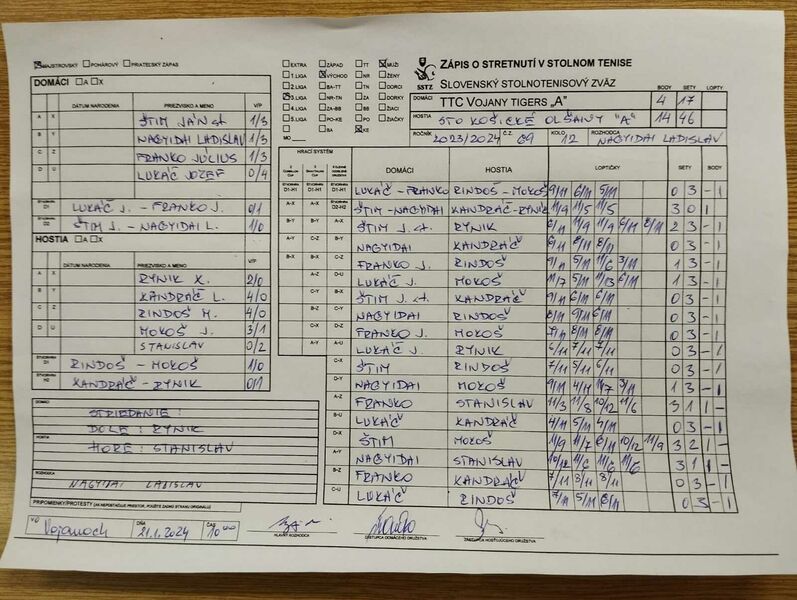 MAJSTROVSKÝ POHÁROVÝ PRIATEĽSKÝ ZÁPAS
DOMÁCI A X
DÁTUM NARODENIA PRIEZVISKO A MENO V/P
A X ŠTIM JÁN ST. 1/3
B Y NAGYIDAI LADISLAV 1/3
C Z FRANKO JÚLIUS 1/3
D U LUKÁČ JOZEF 0/4
ŠTVORHRA D1 LUKÁČ J. - FRANKO J. 0/1
ŠTVORHRA D2 ŠTIM J. - NAGYIDAI L. 1/0
HOSTIA A X
DÁTUM NARODENIA PRIEZVISKO A MENO V/P
A X RYNIK X. 2/0
B Y KANDRÁČ L. 4/0
C Z RINDOŠ M. 4/0
D U MOKOŠ J. 3/1
STANISLAV 0/2
ŠTVORHRA D1 RINDOŠ - MOKOŠ 1/0
ŠTVORHRA H2 KANDRÁČ - RYNIK 0/1
DOMÁCI
STRIEDANIE :
DOLE : RYNIK
HOSTIA
HORE : STANISLAV
ROZHODCA
NAGYIDAI LADISLAV
PRIPOMIENKY/PROTESTY (AK NEPOSTAČUJE PRIESTOR, POUŽITE ZADNÚ STRANU ORIGINÁLU)
V/O Vojanoch DŇA 21.1.2024 ČAS 10 00
HLAVNÝ ROZHODCA
ZÁSTUPCA DOMÁCEHO DRUŽSTVA
ZÁSTUPCA HOSŤUJÚCEHO DRUŽSTVA
EXTRA ZÁPAD TT MUŽI
1.LIGA VÝCHOD NR ŽENY
2.LIGA BA-TT TN DORCI
3.LIGA NR-TN ZA DORKY
4.LIGA ZA-BB BB ŽIACI
5.LIGA PO-KE PO ŽIAČKY
BA KE
MO
SSTZ
ZÁPIS O STRETNUTÍ V STOLNOM TENISE
SLOVENSKÝ STOLNOTENISOVÝ ZVÄZ
BODY SETY LOPTY
DOMÁCI TTC VOJANY TIGERS „A" 4 17
HOSTIA STO KOŠICKÉ OLŠANY "A" 14 46
ROČNÍK 2023/2024 Č.Z. 69 KOLO 12 ROZHODCA NAGYIDAI LADISLAV
HRACÍ SYSTÉM DOMÁCI HOSTIA LOPTIČKY SETY BODY
LUKÁČ - FRANKO RINDOŠ - MOKOŠ 9/11 6/11 5/11 0 3 - 1
ŠTIM - NAGYIDAI KANDRÁČ - RYNIK 11/9 11/5 11/5 3 0 1
ŠTIM J. st. RYNIK 11/9 11/9 6/11 8/11 2 3 - 1
NAGYIDAI KANDRÁČ 6/11 8/11 8/11 0 3 - 1
FRANKO J. RINDOŠ 9/11 5/11 11/6 3/11 1 3 - 1
LUKÁČ J. MOKOŠ 11/7 5/11 11/13 6/11 1 3 - 1
ŠTIM J. st. KANDRÁČ 9/11 6/11 6/11 0 3 - 1
NAGYIDAI RINDOŠ 8/11 9/11 6/11 0 3 - 1
FRANKO J. MOKOŠ 7/11 8/11 8/11 0 3 - 1
LUKÁČ J. RYNIK 6/11 7/11 7/11 0 3 - 1
ŠTIM RINDOŠ 7/11 5/11 6/11 0 3 - 1
NAGYIDAI MOKOŠ 9/11 4/11 11/7 3/11 1 3 - 1
FRANKO STANISLAV 11/3 11/8 10/12 11/6 3 1 1 -
LUKÁČ KANDRÁČ 4/11 5/11 4/11 0 3 - 1
ŠTIM MOKOŠ 11/9 11/7 8/11 10/12 11/9 3 2 1 -
NAGYIDAI STANISLAV 10/12 11/6 11/6 11/6 3 1 1 -
FRANKO KANDRÁČ 7/11 3/11 8/11 0 3 - 1
LUKÁČ RINDOŠ 7/11 5/11 8/11 0 3 - 1